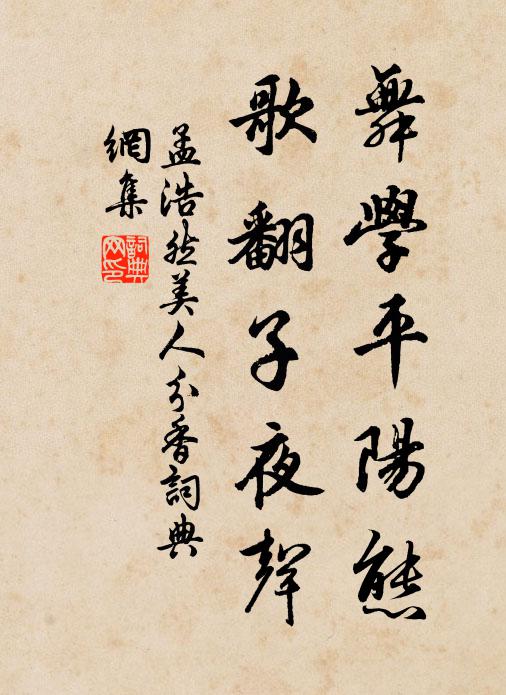 舞學平陽態
歌翻子夜聲
孟浩然美人分香詞典
網集
詞典网印